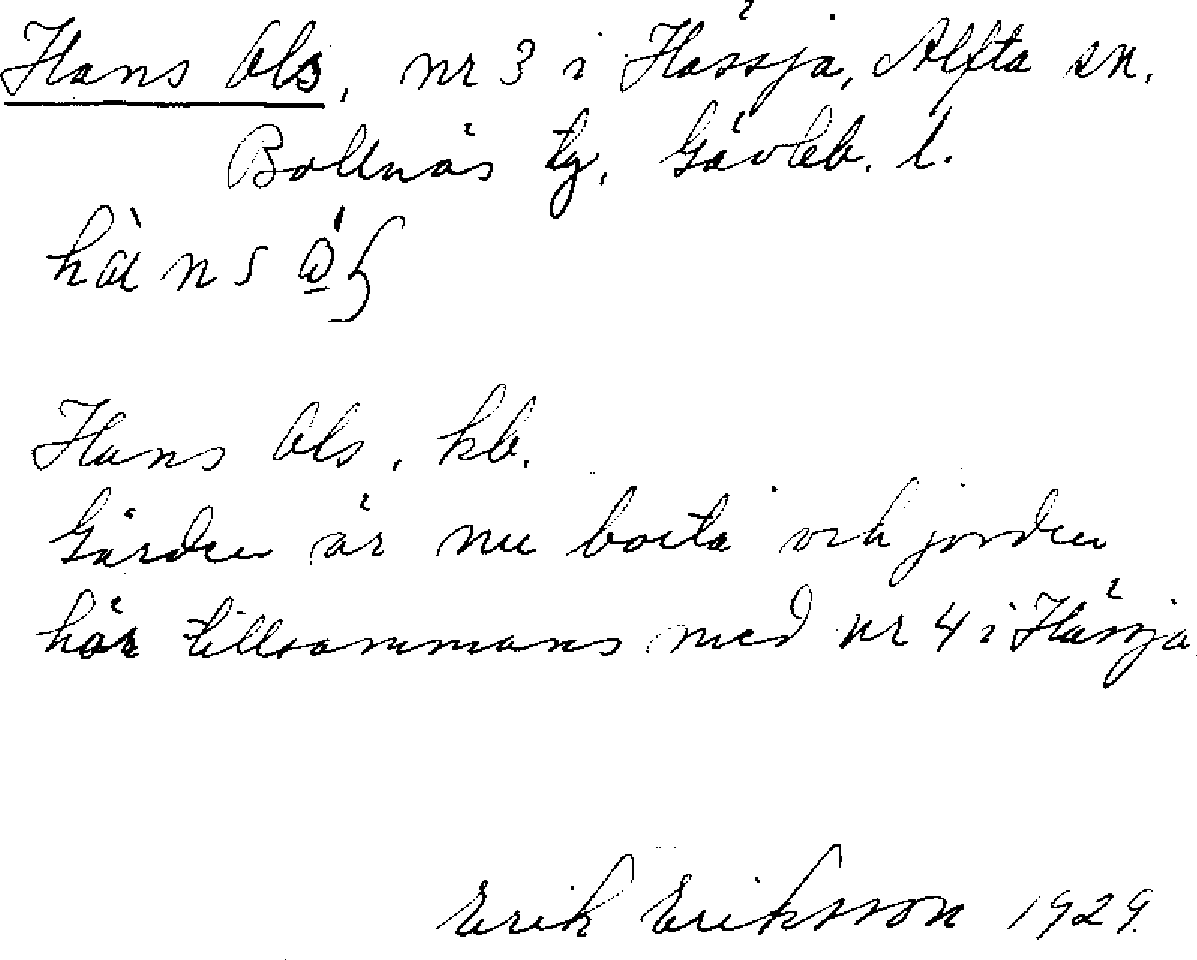 Hans Ols, nr 3 i Hässja, Alfta sn.
Bollnäs tg, Gävleb. l.
Hans Ols, kb.
Gården är nu borta och jorden
här tillsammans med nr 4 i Hässja.
Erik Eriksson 1929.